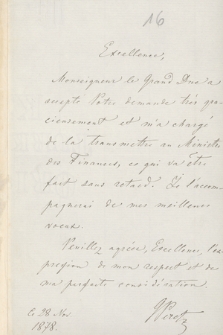 16
Excellence,
Monseigneur le Grand Duc a
accepté Votre demande très gra-
cieusement et m'a chargé
de la transmettre au Ministre
des Finances, ce qui va être
fait sans retard. Je l'accom-
pagnerai de mes meilleurs
voeux.
Veuillez agréer, Excellence, l'ex-
pression de mon respect et de
ma parfaite considération.
le 28 Nov
1878.